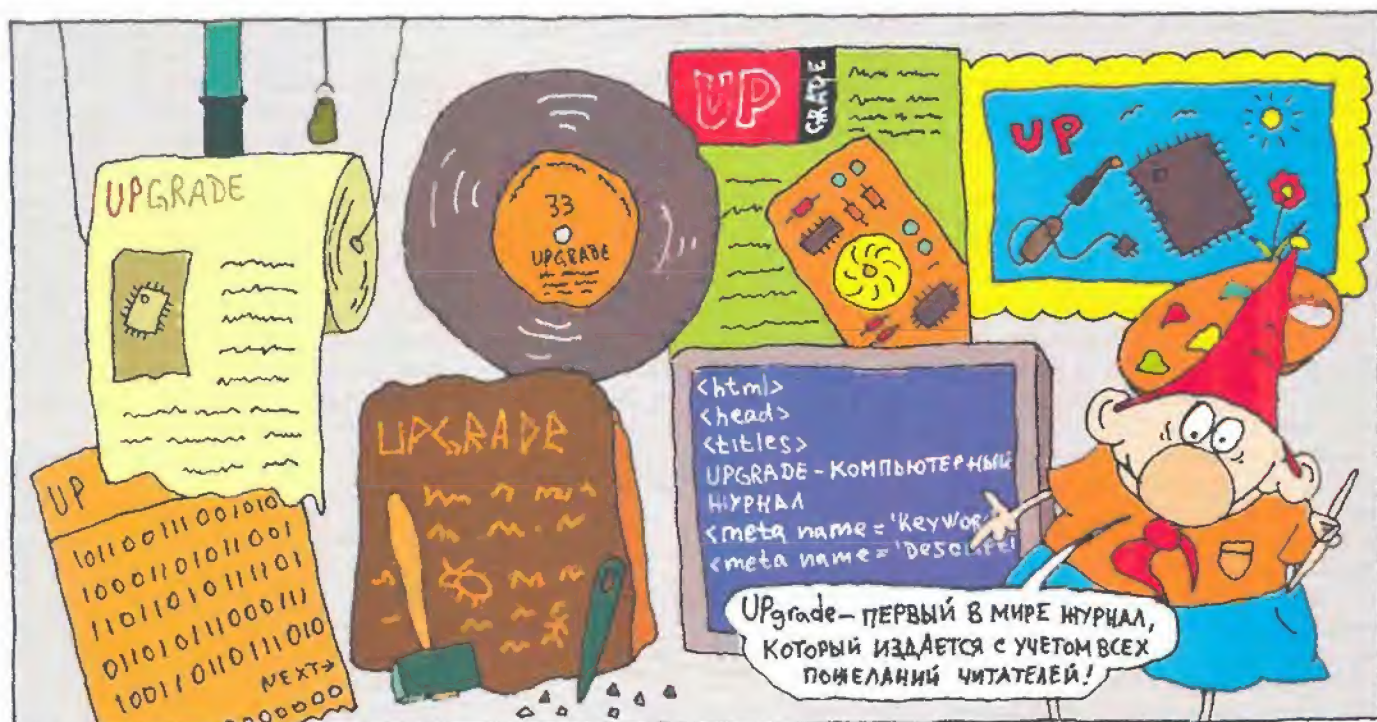 UPGRADE
UP
101100111001010
1000110101011001
110110101011101
01101011110001111
1001101101110 10
NEXT→
000000
33
UPGRADE
UPGRADE
UP
GRADE
UP
<html>
<head>
<titles>
UPGRADE-КОМПЬЮТЕРНЫЙ
ЖУРНАЛ
<meta name='Keywor
<meta name='Descr
UPgrade – ПЕРВЫЙ В МИРЕ ЖУРНАЛ,
КОТОРЫЙ ИЗДАЕТСЯ С УЧЕТОМ ВСЕХ
ПОЖЕЛАНИЙ ЧИТАТЕЛЕЙ!